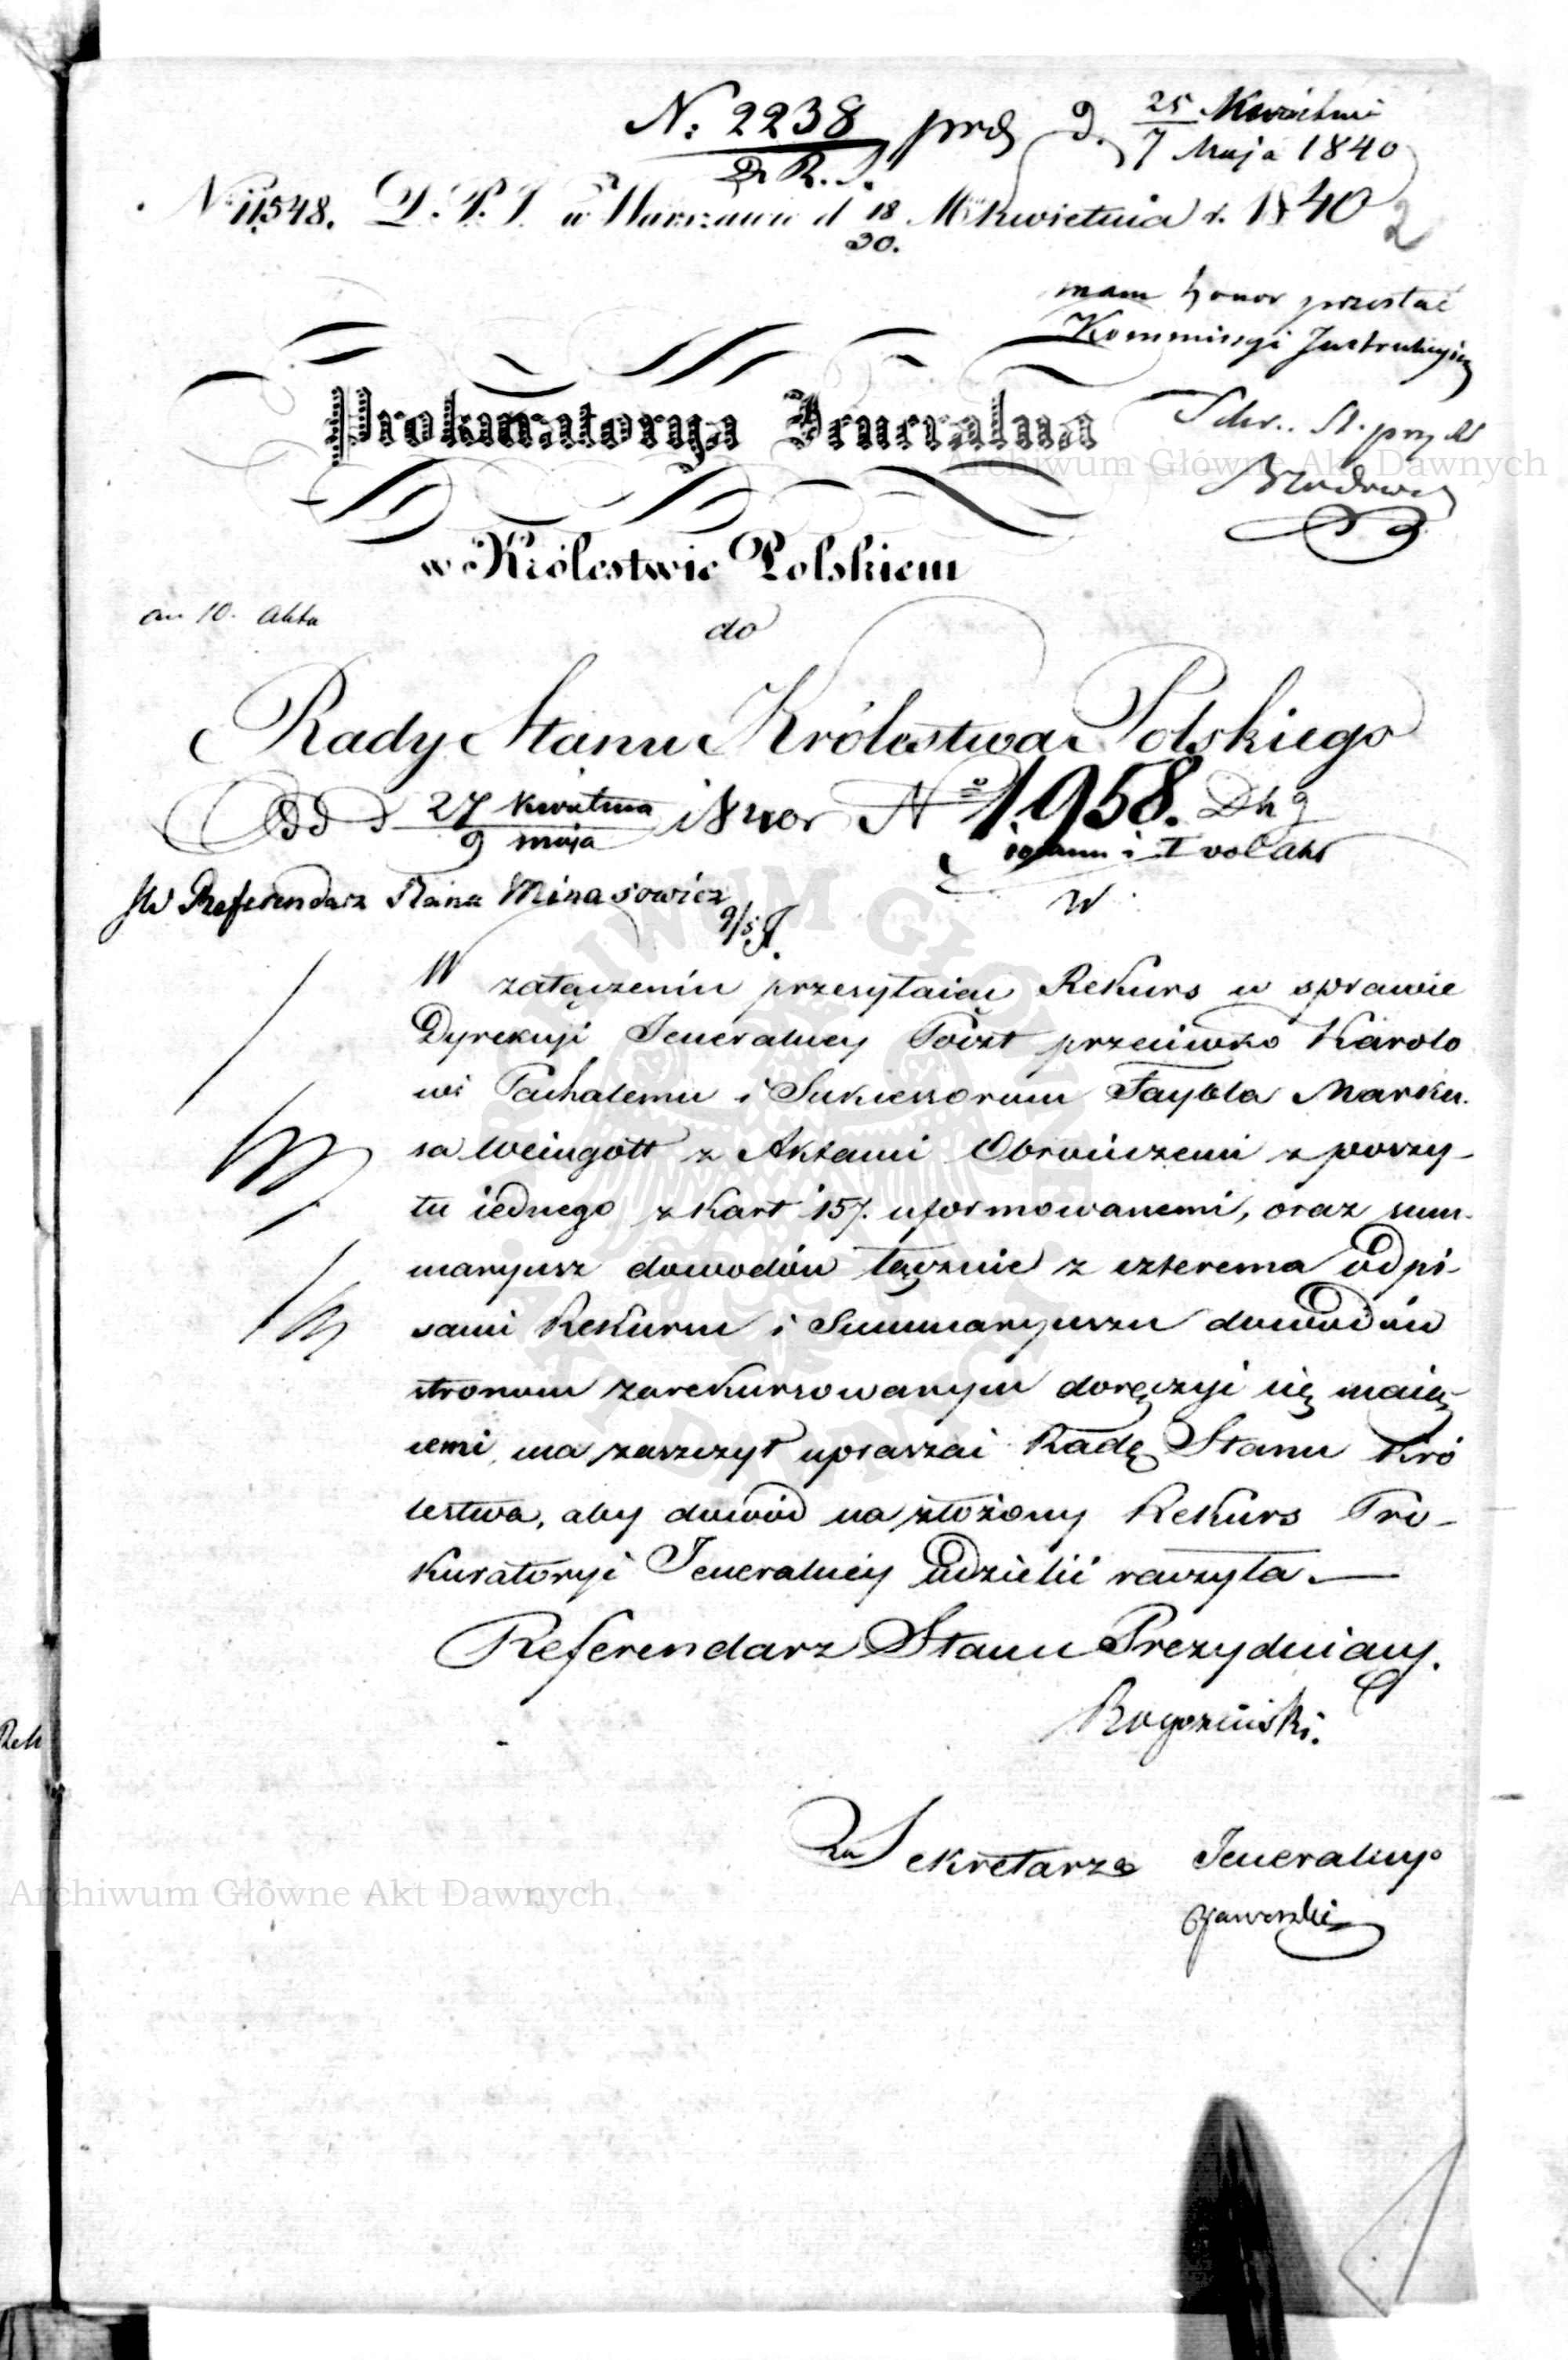 N: 2238 prd d. 25 Kwietnia
7 Maja 1840
D R. S.
N: 11548. D. P. J. w Warszawie d 18 M kwietnia r. 1840
30.
2
mam honor przesłać
Kommissyi Instrukcyjn
Sekr. St. przy
Prokuratorya Jeneralna
w Królestwie Polskiem
do
Rady Stanu Królestwa Polskiego
27 kwietnia 1840 r N° 1,958.
9 maja
i I vol akt
JW Referendarz Stanu Minasowicz
9/5
W
W załączeniu przesyłaiąc Rekurs w sprawie
Dyrekcyi Jeneralney Poczt przeciwko Karolo
wi Pachalemu i Sukcessorom Faybla Marku-
sa Weingott z Aktami Obrończemi z poszy-
tu iednego z kart 157. uformowanemi, oraz sum-
maryusz dowodów łącznie z czterema odpi-
sami Rekursu i Summaryuszu dowodów
stronom zarekursowanym doręczyć się maią-
cemi, ma zaszczyt upraszać Radę Stanu Kró
lestwa, aby dowód na złożony Rekurs Pro-
kuratoryi Jeneralney udzielić raczyła.—
Referendarz Stanu Prezyduiący.
Rogoziński.
Za Sekretarza Jeneralnego
Jaworski
Archiwum Główne Akt Dawnych
Archiwum Główne Akt Dawnych
ARCHIWUM GŁÓWNE AKT DAWNYCH